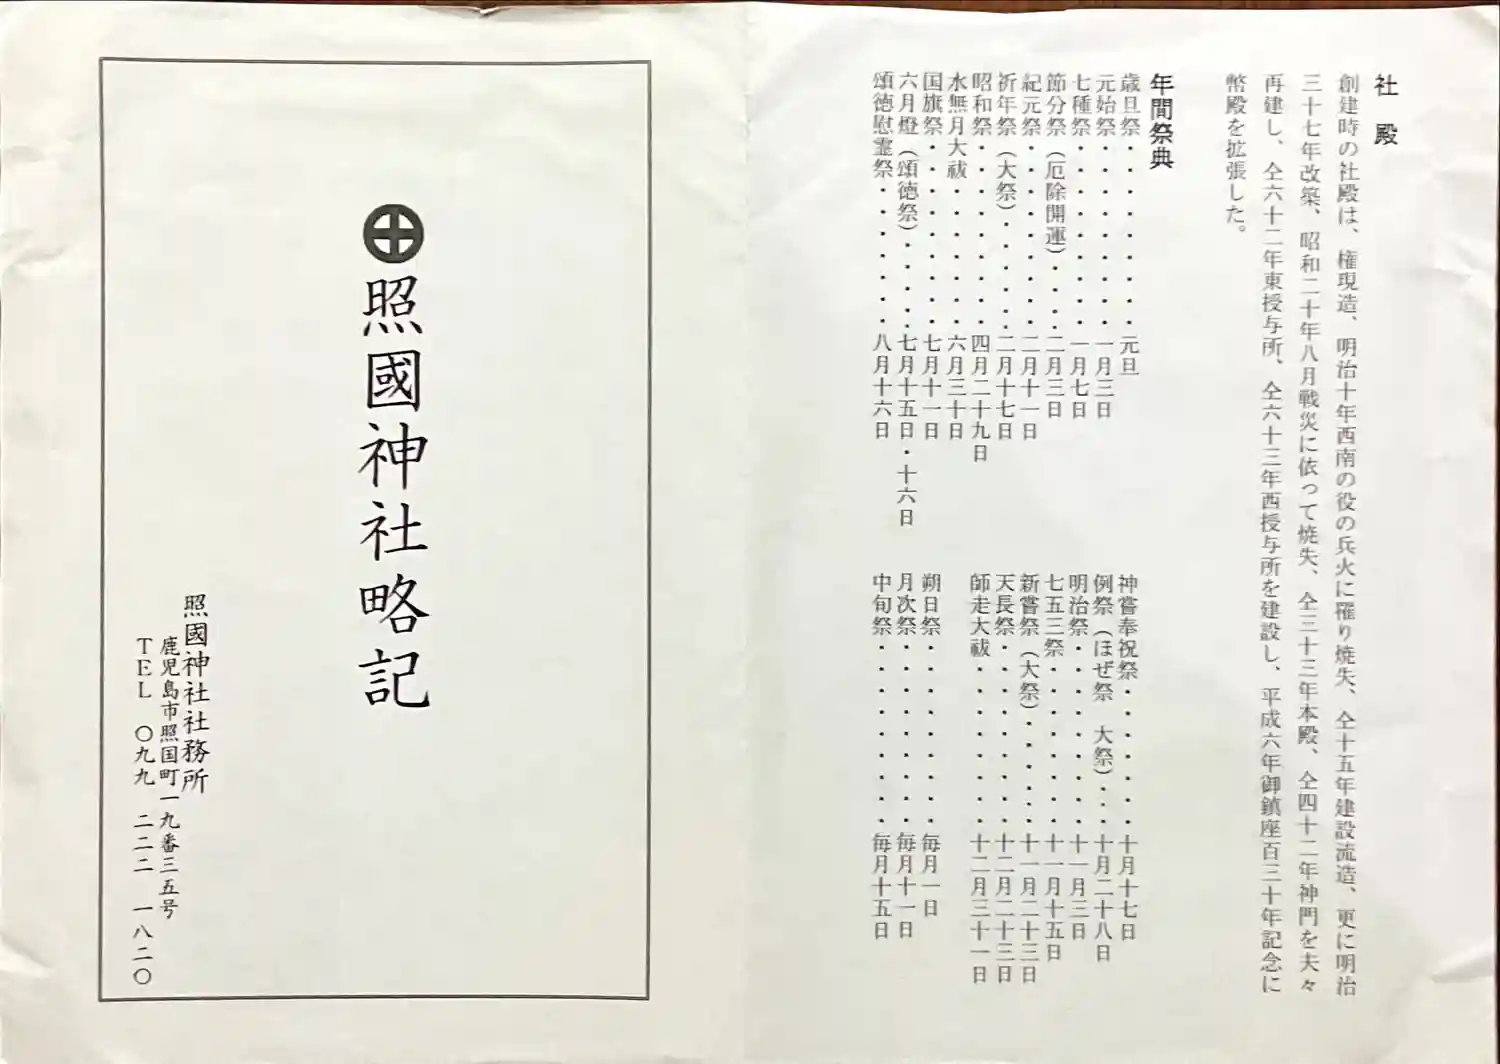 社殿
創建時の社殿は、権現造、明治十年西南の役の兵火に罹り焼失、仝十五年建設流造、更に明治
三十七年改築、昭和二十年八月戦災に依って焼失、仝三十三年本殿、仝四十二年神門を夫々
再建し、仝六十二年東授与所、仝六十三年西授与所を建設し、平成六年御鎮座百三十年記念に
幣殿を拡張した。
年間祭典
歳旦祭・・・・・・・・・元旦
元始祭・・・・・・・・・一月三日
七種祭・・・・・・・・・一月七日
節分祭（厄除開運）・・・・二月三日
紀元祭・・・・・・・・・二月十一日
祈年祭（大祭）・・・・・二月十七日
昭和祭・・・・・・・・・四月二十九日
水無月大祓・・・・・・・六月三十日
国旗祭・・・・・・・・・七月十一日
六月燈（頌徳祭）・・・・・七月十五日・十六日
頌徳慰霊祭・・・・・・・八月十六日
神嘗奉祝祭・・・・・・・十月十七日
例祭（ほぜ祭　大祭）・・十月二十八日
明治祭・・・・・・・・・十一月三日
七五三祭・・・・・・・・十一月十五日
新嘗祭（大祭）・・・・・十一月二十三日
天長祭・・・・・・・・・十二月二十三日
師走大祓・・・・・・・・十二月三十一日
朔日祭・・・・・・・・・毎月一日
月次祭・・・・・・・・・毎月十一日
中旬祭・・・・・・・・・毎月十五日
照國神社略記
照國神社社務所
鹿児島市照国町一九番三五号
TEL　〇九九　二二二　一八二〇